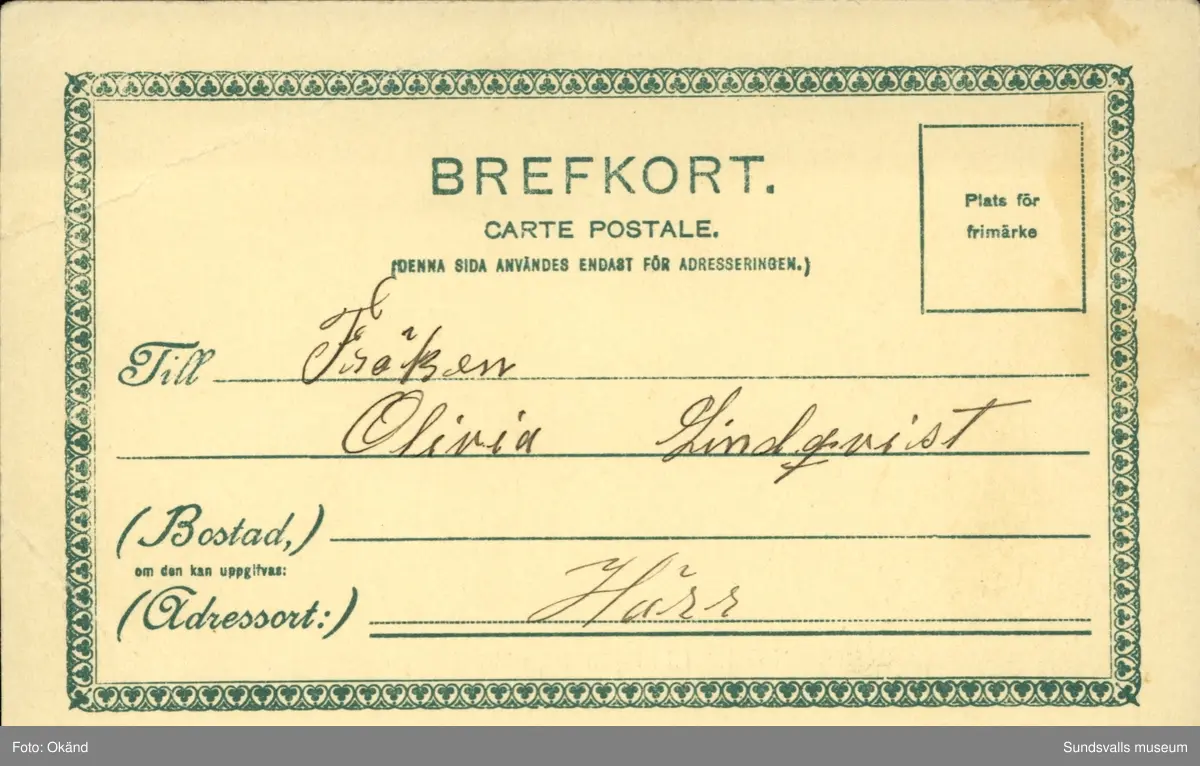 BREFKORT.
CARTE POSTALE.
(DENNA SIDA ANVÄNDES ENDAST FÖR ADRESSERINGEN.)
Plats för
frimärke
Till Fröken
Olivia Lindqvist
(Bostad,)
om den kan uppgifvas:
(Adressort:) Härr
Foto: Okänd
Sundsvalls museum